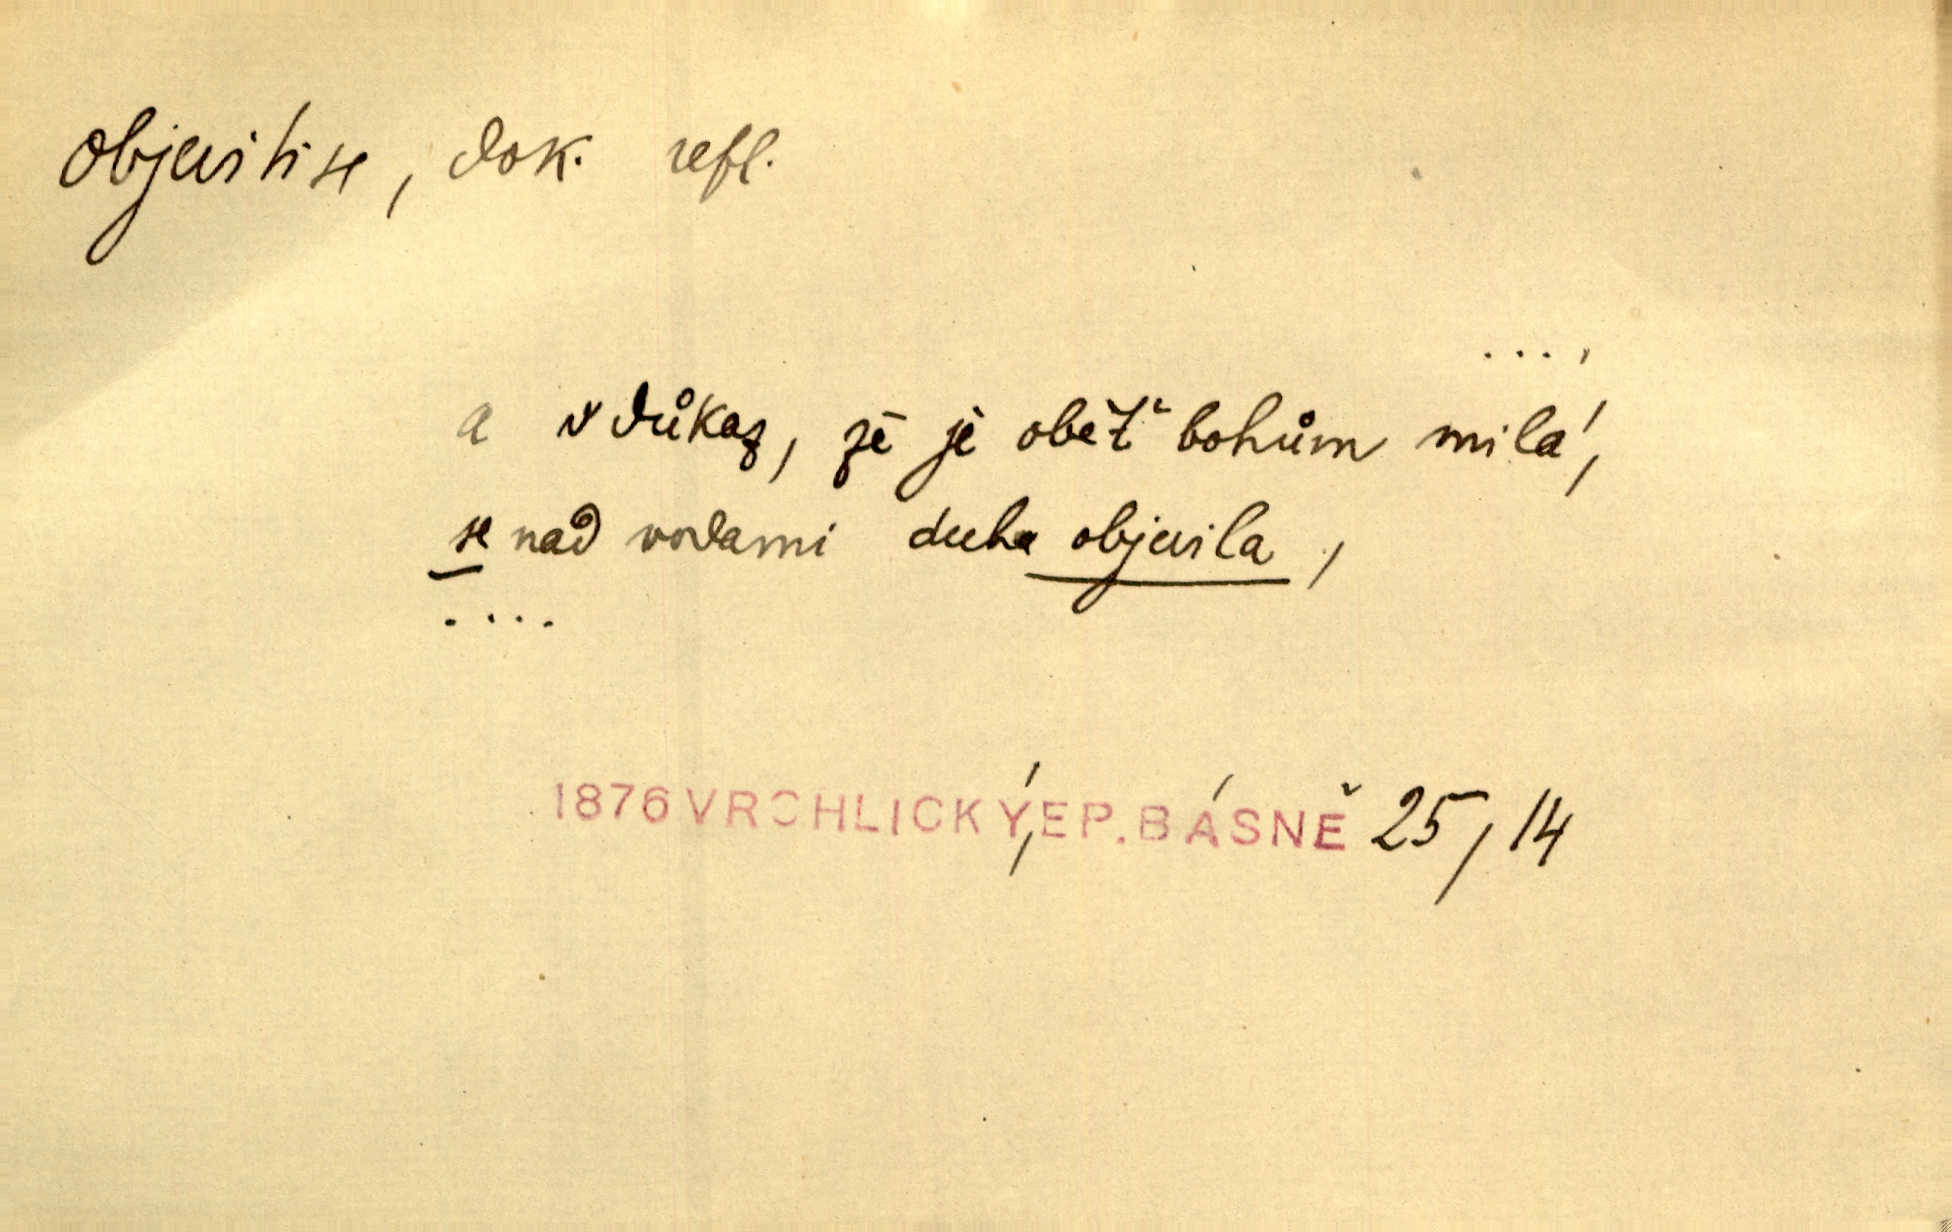 objeviti se, dok. refl.
....,
a v důkaz, že je oběť bohům milá,
se nad vodami duha objevila,
....
1876 VRCHLICKÝ, EP. BÁSNĚ 25, 14